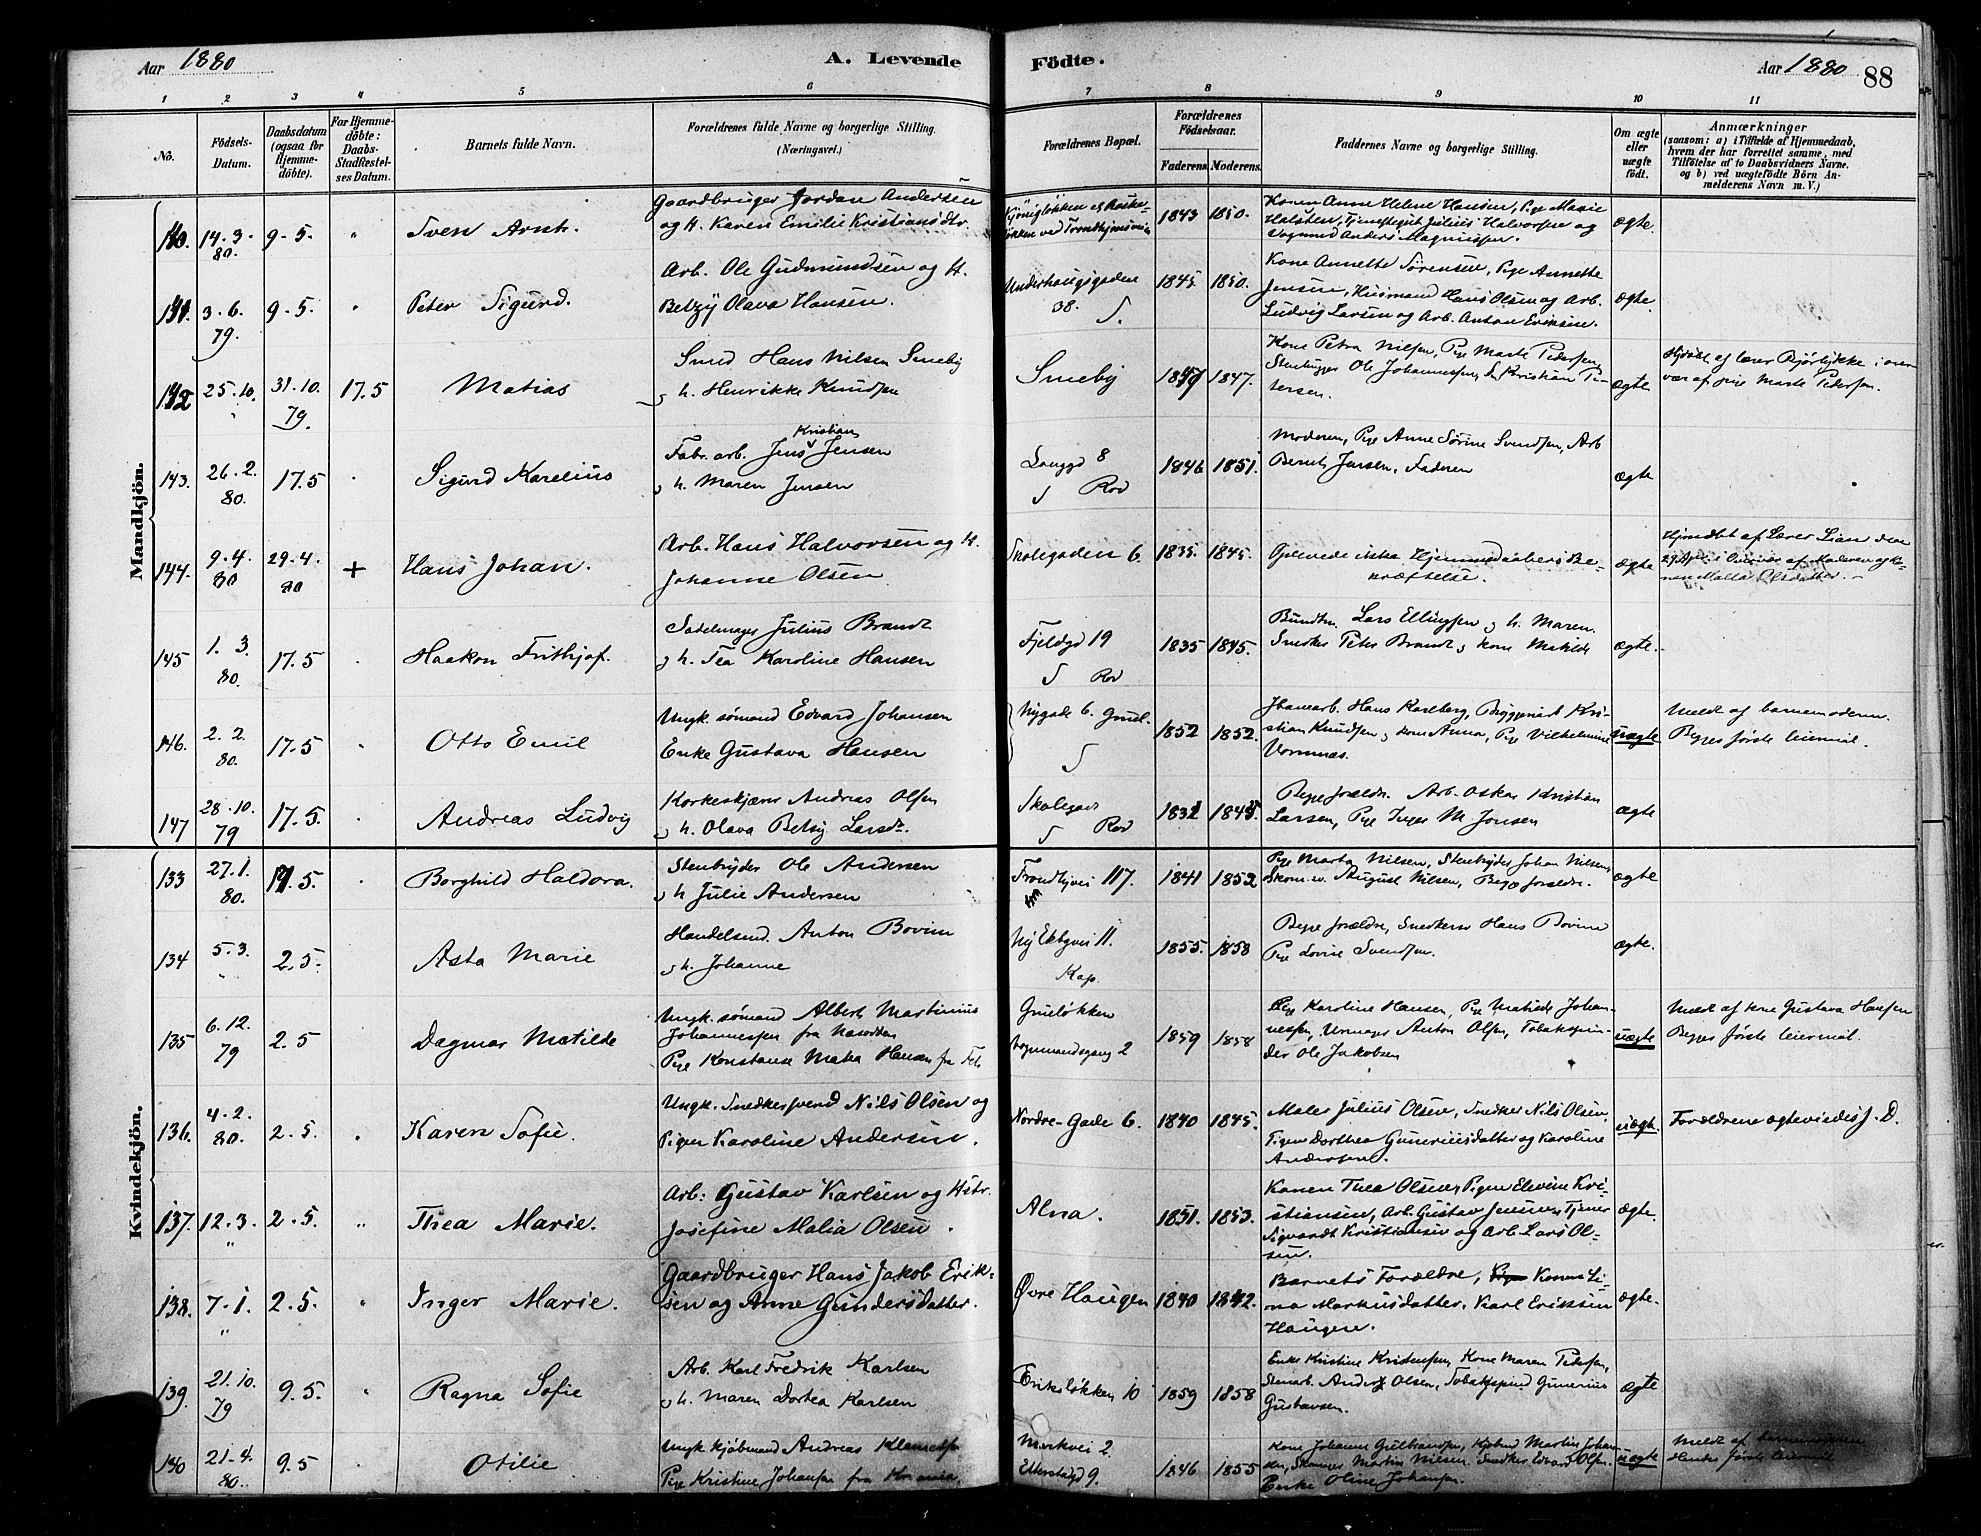 Aar 1880
A. Levende
Födte.
Aar 1880
88
1 2 3 4 5 6 7 8 9 10 11
No.
Födsels-
Datum.
Daabsdatum
(ogsaa for
Hjemme-
döbte).
For Hjemme-
döbte:
Daabs-
Stadfæstel-
ses Datum.
Barnets fulde Navn.
Forældrenes fulde Navne og borgerlige Stilling.
(Næringsvei.)
Forældrenes Bopæl.
Forældrenes
Födselsaar.
Faderens Moderens
Faddernes Navne og borgerlige Stilling.
Om ægte
eller
uægte
födt.
Anmærkninger
(saasom: a) i Tilfælde af Hjemmedaab,
hvem der har forrettet samme, med
Tilföielse af to Daabsvidners Navne.
og b) ved uægtefödte Börn An-
melderens Navn m. V.)
Mandkjön.
140. 14-3- 80. 9-5. " Sven Arnt.
Gaardbruger Jordan Andersen
og H. Karen Emilie Kristiansdtr.
1843 1850.
Konen Anne Helene Hansen, Pige Marie
Halsten, Tjenestegut Julius Halvorsen og
Vognmd Anders Magnussen.
ægte.
141. 3-6. 79. 9-5. " Peter Sigurd.
Arb. Ole Gudmundsen og H.
Betzy Olava Hansen.
Underhaugsgaden
38. S.
1845 1850.
Kone Annette Sørensen, Pige Annette
Jensen, Husmand Hans Olsen og Arb.
Ludvig Larsen og Arb. Anton Eriksen.
ægte.
142 25.10. " 31.10. 79. 17.5 Matias
Smed Hans Nilsen Smeby
o h. Henrikke Knudsen
Smeby
1847.
Kone Petra Nilsen, Pige Marte Pedersen,
Stenhugger Ole Johannessen,
ægte
143. 26.2. 80. 17.5 " Sigurd Karelius
Fabr. arb. Jens Kristian Jensen
o h. Maren Jensen
Langgd 8
S Rov
1846 1851.
Moderen, Pige Anne Sørine Svendsen, Arb
Bernt Jensen, Faderen
ægte
144. 9-4. 80 29-4. 80 + Hans Johan.
Arb. Hans Halvorsen og H.
Johanne Olsen
Skolegaden 6.
1835. 1845.
Hjemmedaabens Be-
kræftelse.
ægte
145 1. 3. 80. 17.5 " Haakon Frithjof.
Sadelmager Julius Brandt
o h. Tea Karoline Hansen
Fjeldgd 19
S Rov
1835 1845.
Bundtm. Lars Ellingsen o h. Maren.
Snedker Peter Brandt o kone Matilde
ægte.
146. 2.2. 80. 17.5 " Otto Emil
Ungk. sømand Edvard Johansen
Enke Gustava Hansen
Nygade 6.
S
1852 1852.
Hans Karlberg,
Knudsen o kone Anna, Pige Vilhelmine
uægte
Meldt af barnemoderen.
Begges første leiermål.
147 28.10. 79 17.5. " Andreas Ludvig
Korkeskjærer Andreas Olsen
o h. Olava Betsy Larsdt.
Skolegad
S Rov
Begge forældre. Arb. Oskar Kristian
Larsen, Pige Inger M Jonsen
ægte
Kvindekjön.
133 27.1. 80. " Borghild Haldora.
Stenbryder Ole Andersen
o h Julie Andersen
Trondhjvei 117.
1841 1852
Pige Marta Nilsen, Stenbryder Johan Nilsen,
August Nilsen, Begge forældre.
ægte
134 5.3. " 2.5. " Asta Marie
Handelsmd. Anton Bovim
o h. Johanne
Ny Ekbgvei 11.
Kap.
1855. 1858
Begge forældre, Snedkersv Hans Bovim
Pige Lovise Svendsen.
ægte.
135 6.12. 79 2.5 Dagmar Matilde
Ungk. sømand Albert Martinius
Johannessen fra Næsodden
Pige Konstanse Matea Hansen fra Fet
Grueløkken
Vognmandsgang 2
1859 1858
Pige Karoline Hansen, Pige Matilde Johan-
nessen, Urmager Anton Olsen, Tobakspin-
der Ole Jakobsen
uægte
Meldt af kone Gustava Hansen
Begges første leiermål.
136. 4-2. 80. 2-5. " Karen Sofie.
Ungk. Snedkersvend Nils Olsen og
Pigen Karoline Andersen.
Nordre-Gade 6.
1840 1845.
Maler Julius Olsen, Snedker Nils Olsen,
Pigen Dorthea Guneriusdatter og Karoline
Andersen.
uægte.
Forældrene ægteviedes s. D.
137. 12.3. " 2-5. " Thea Marie.
Arb: Gustav Karlsen og Hstr.
Josefine Malia Olsen.
Alna.
1851. 1853.
Konen Thea Olsen, Pigen Elevine Kri-
stiansen, Arb. Gustav Jensen, Tjener
Sigvardt Kristiansen og Arb. Lars Ol-
sen.
ægte.
138. 7-1. " 2-5. " Inger Marie.
Gaardbruger Hans Jakob Erik-
sen og Anne Gundersdatter.
Øvre Haugen
1840 1842.
Barnets Forældre, Konen Li-
na Markusdatter, Karl Eriksen
Haugen.
ægte.
139. 21.10. 79 9.5. " Ragna Sofie
Arb. Karl Fredrik Karlsen
o h. Maren Dortea Karlsen
Eriksløkken 10
1859 1858
Enke Kristine Kristensen, Kone Maren Pedersen,
Stenarb. Anders Olsen, Tobakspind Gunerius
Gustavsen.
ægte
21-4. 80. 9.5 " Otilie
Ungk. kjøbmand Andreas
Pige Kristine Johansen fra
Markvei 2
Etterstadgd 9.
1846 1855
Kone Johanne Gulbrandsen, Martin Johan-
sen, Martin Nilsen, Snedker Edvard Olsen.
Enke Oline Johansen.
uægte
Meldt af barnemoderen
Hendes første leiermål